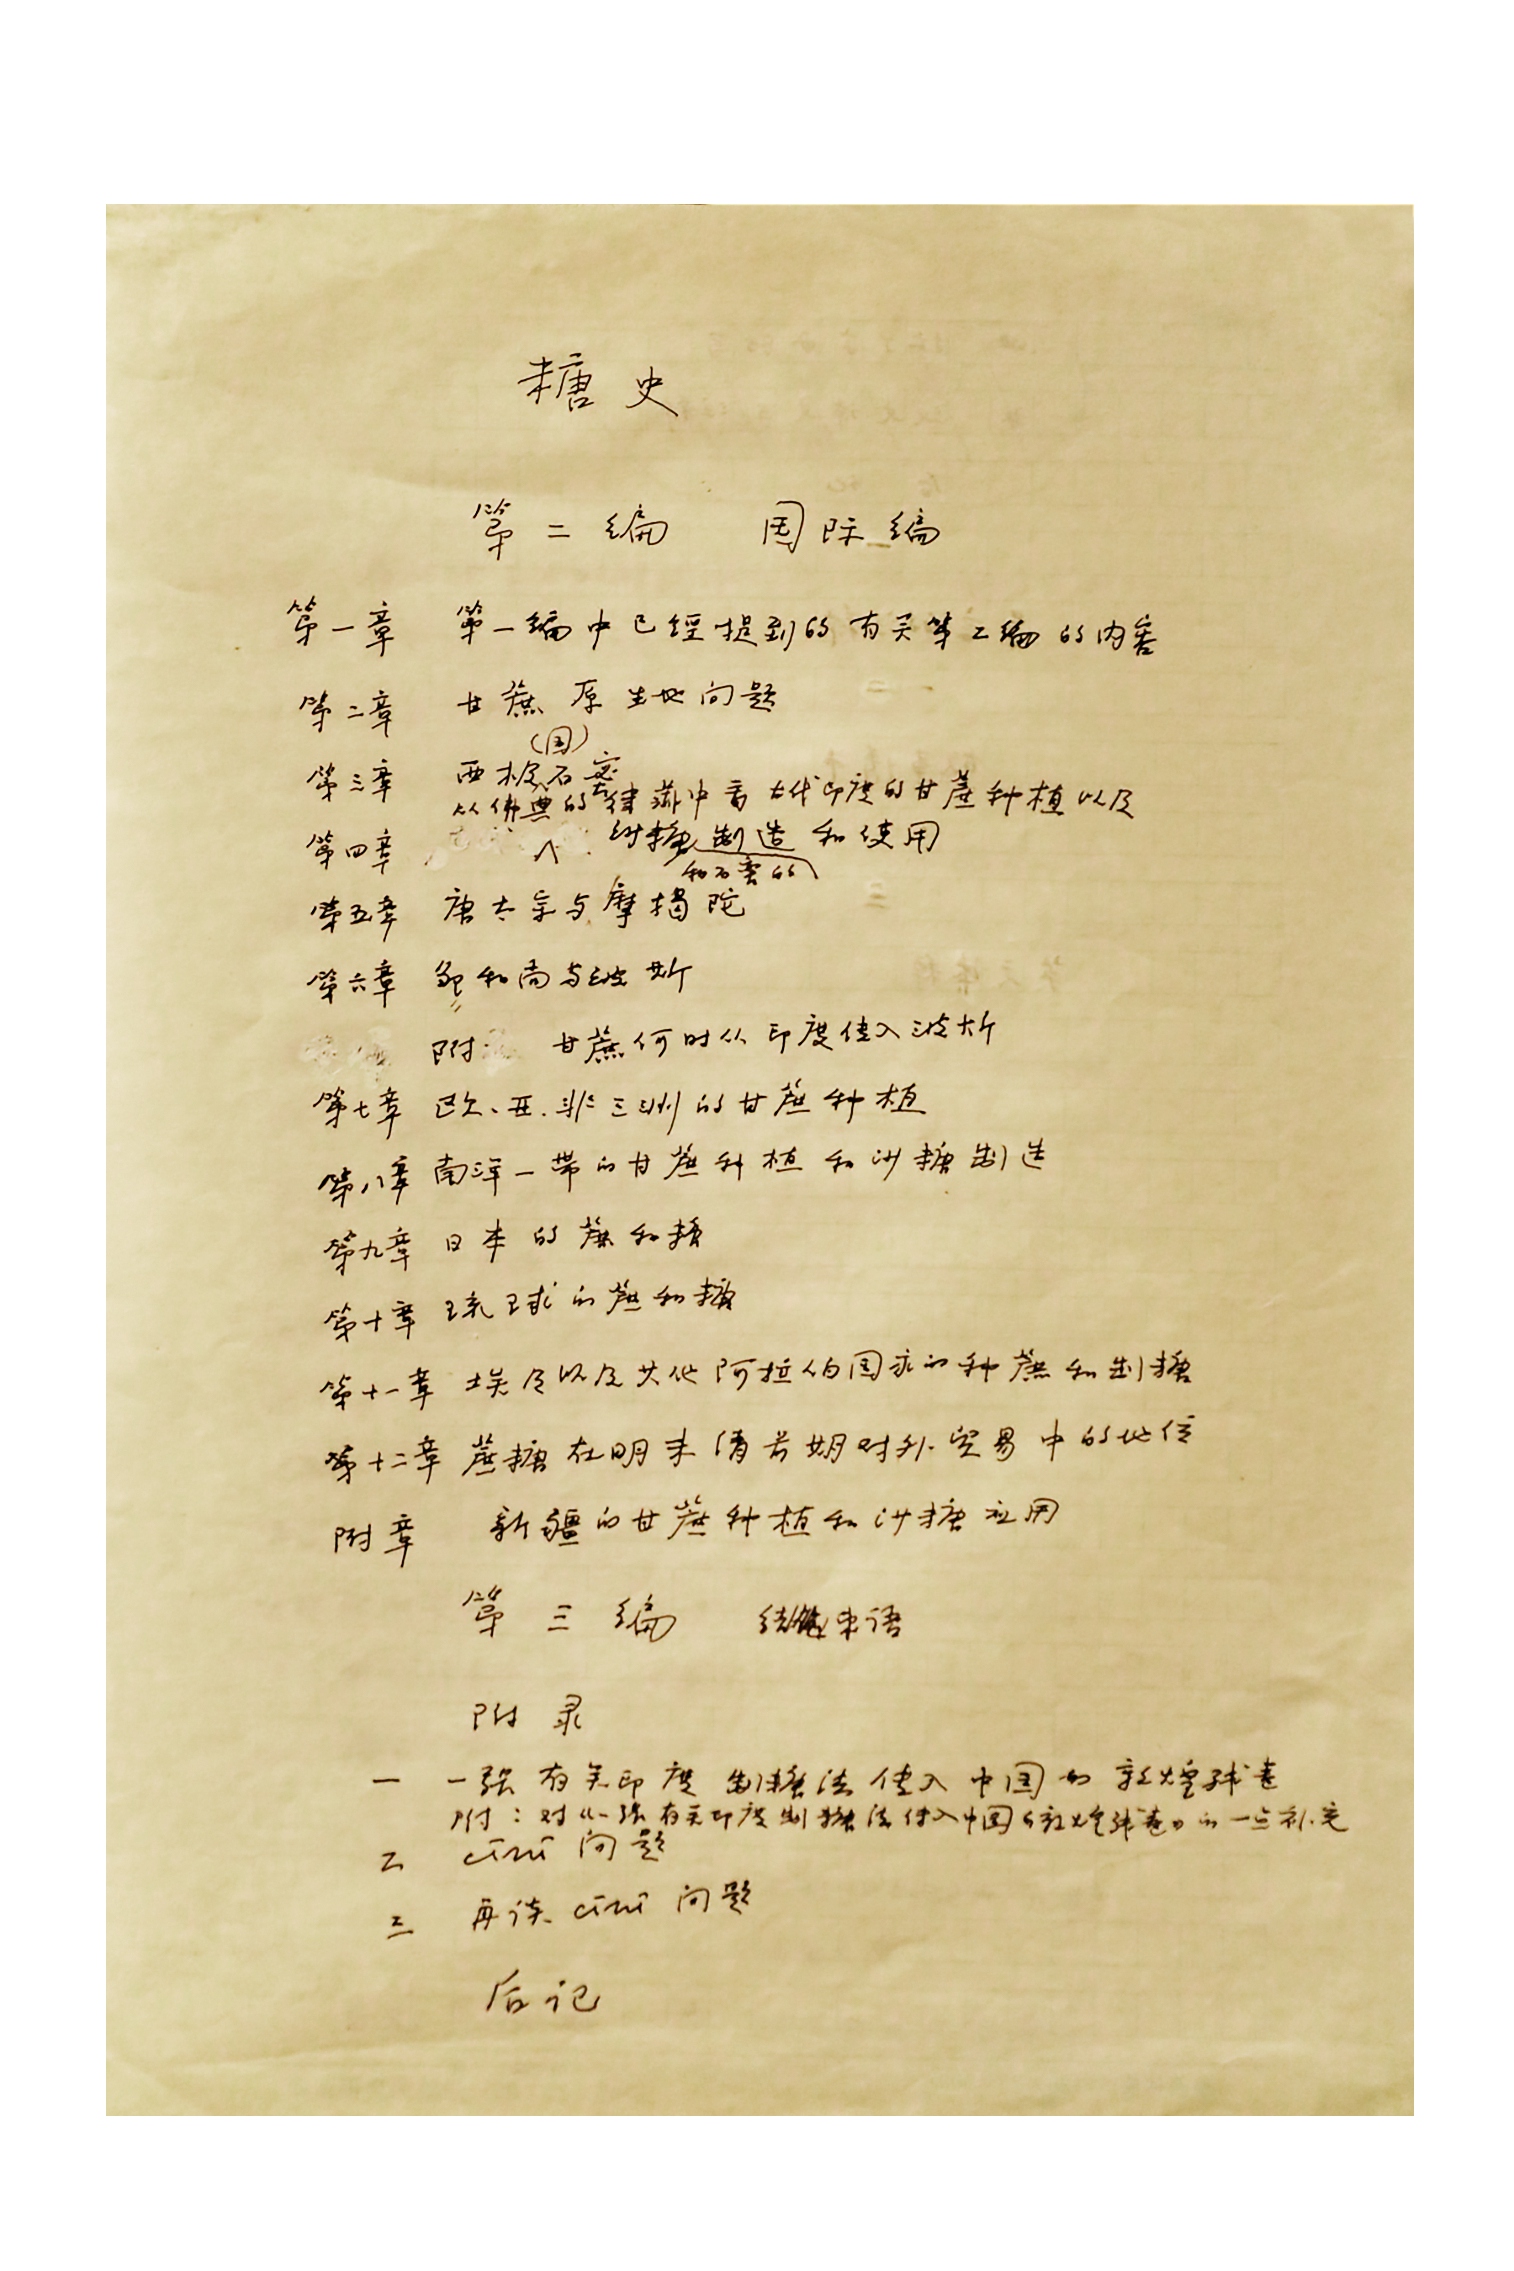 糖史
第二编 国际编
第一章 第一编中已經提到的有关第二编的内容
第二章 甘蔗原生地问题
(国)
第三章 西极石蜜
从佛典的律藏中看古代印度的甘蔗种植以及
第四章 对糖制造和使用
和石蜜的
第五章 唐太宗与摩揭陀
第六章 邹和尚与波斯
附 甘蔗何时从印度传入波斯
第七章 欧、亚、非三洲的甘蔗种植
第八章 南洋一带的甘蔗种植和沙糖制造
第九章 日本的蔗和糖
第十章 琉球的蔗和糖
第十一章 埃及以及其他阿拉伯国家的种蔗和制糖
第十二章 蔗糖在明末清前期对外贸易中的地位
附章 新疆的甘蔗种植和沙糖应用
第三编 结束语
附录
一 一张有关印度制糖法传入中国的敦煌残卷
附：对《一张有关印度制糖法传入中国的敦煌残卷》的一点补充
二 cīnī问题
三 再谈cīnī问题
后记